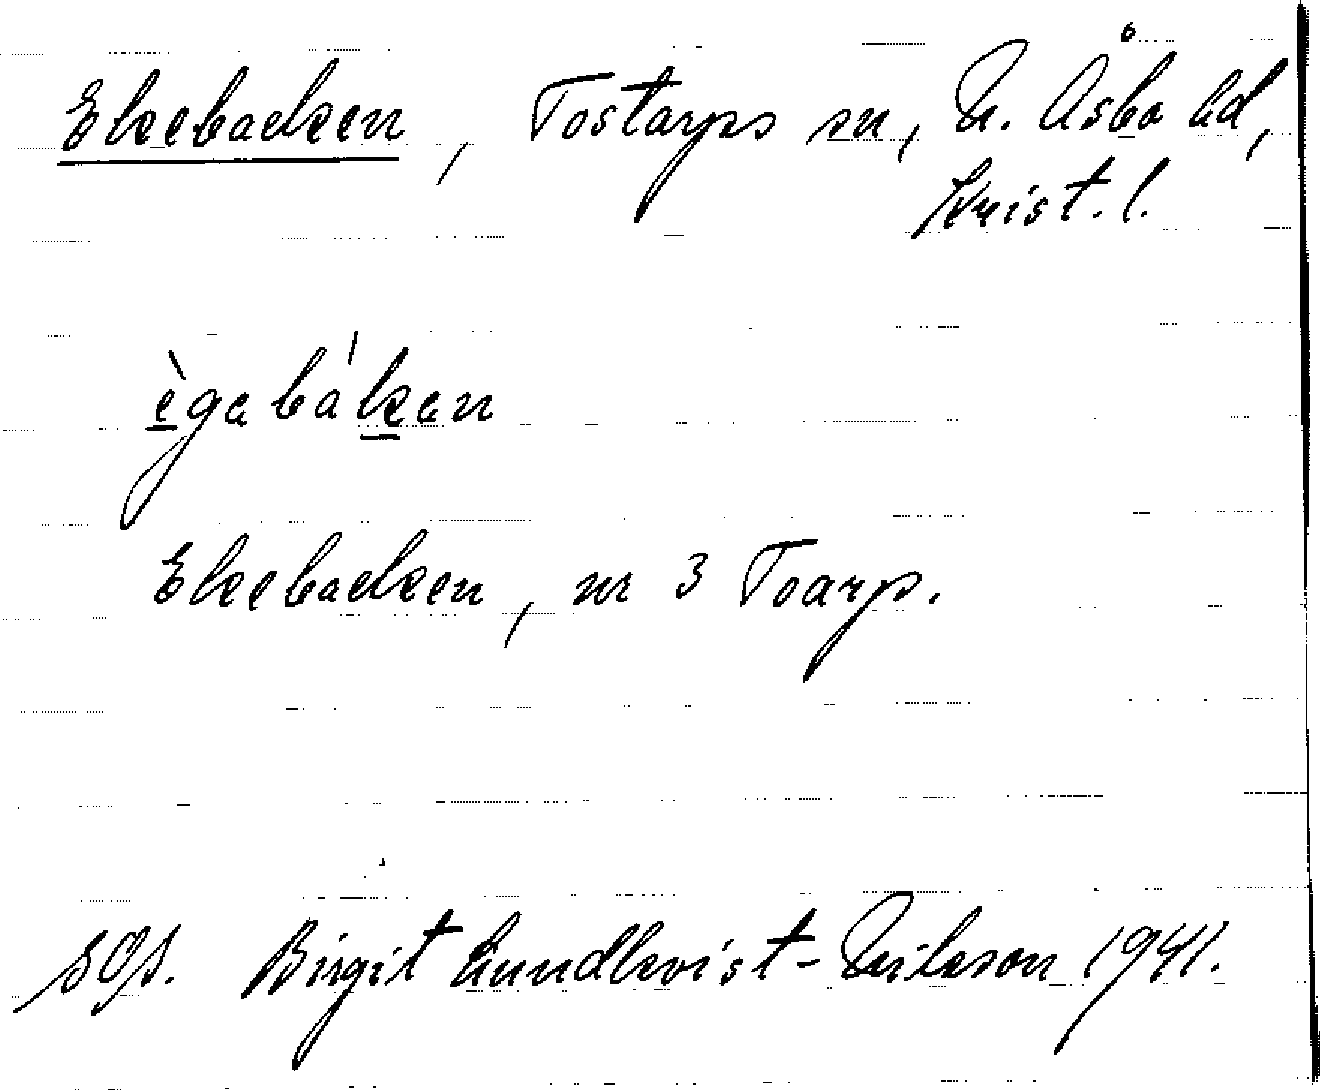 Ekebacken, Tostarps sn, N. Åsbo hd,
Krist. l.
ègabákan
Ekebacken, nr 3 Toarp.
sgs. Birgit Lundkvist-Nilsson 1941.